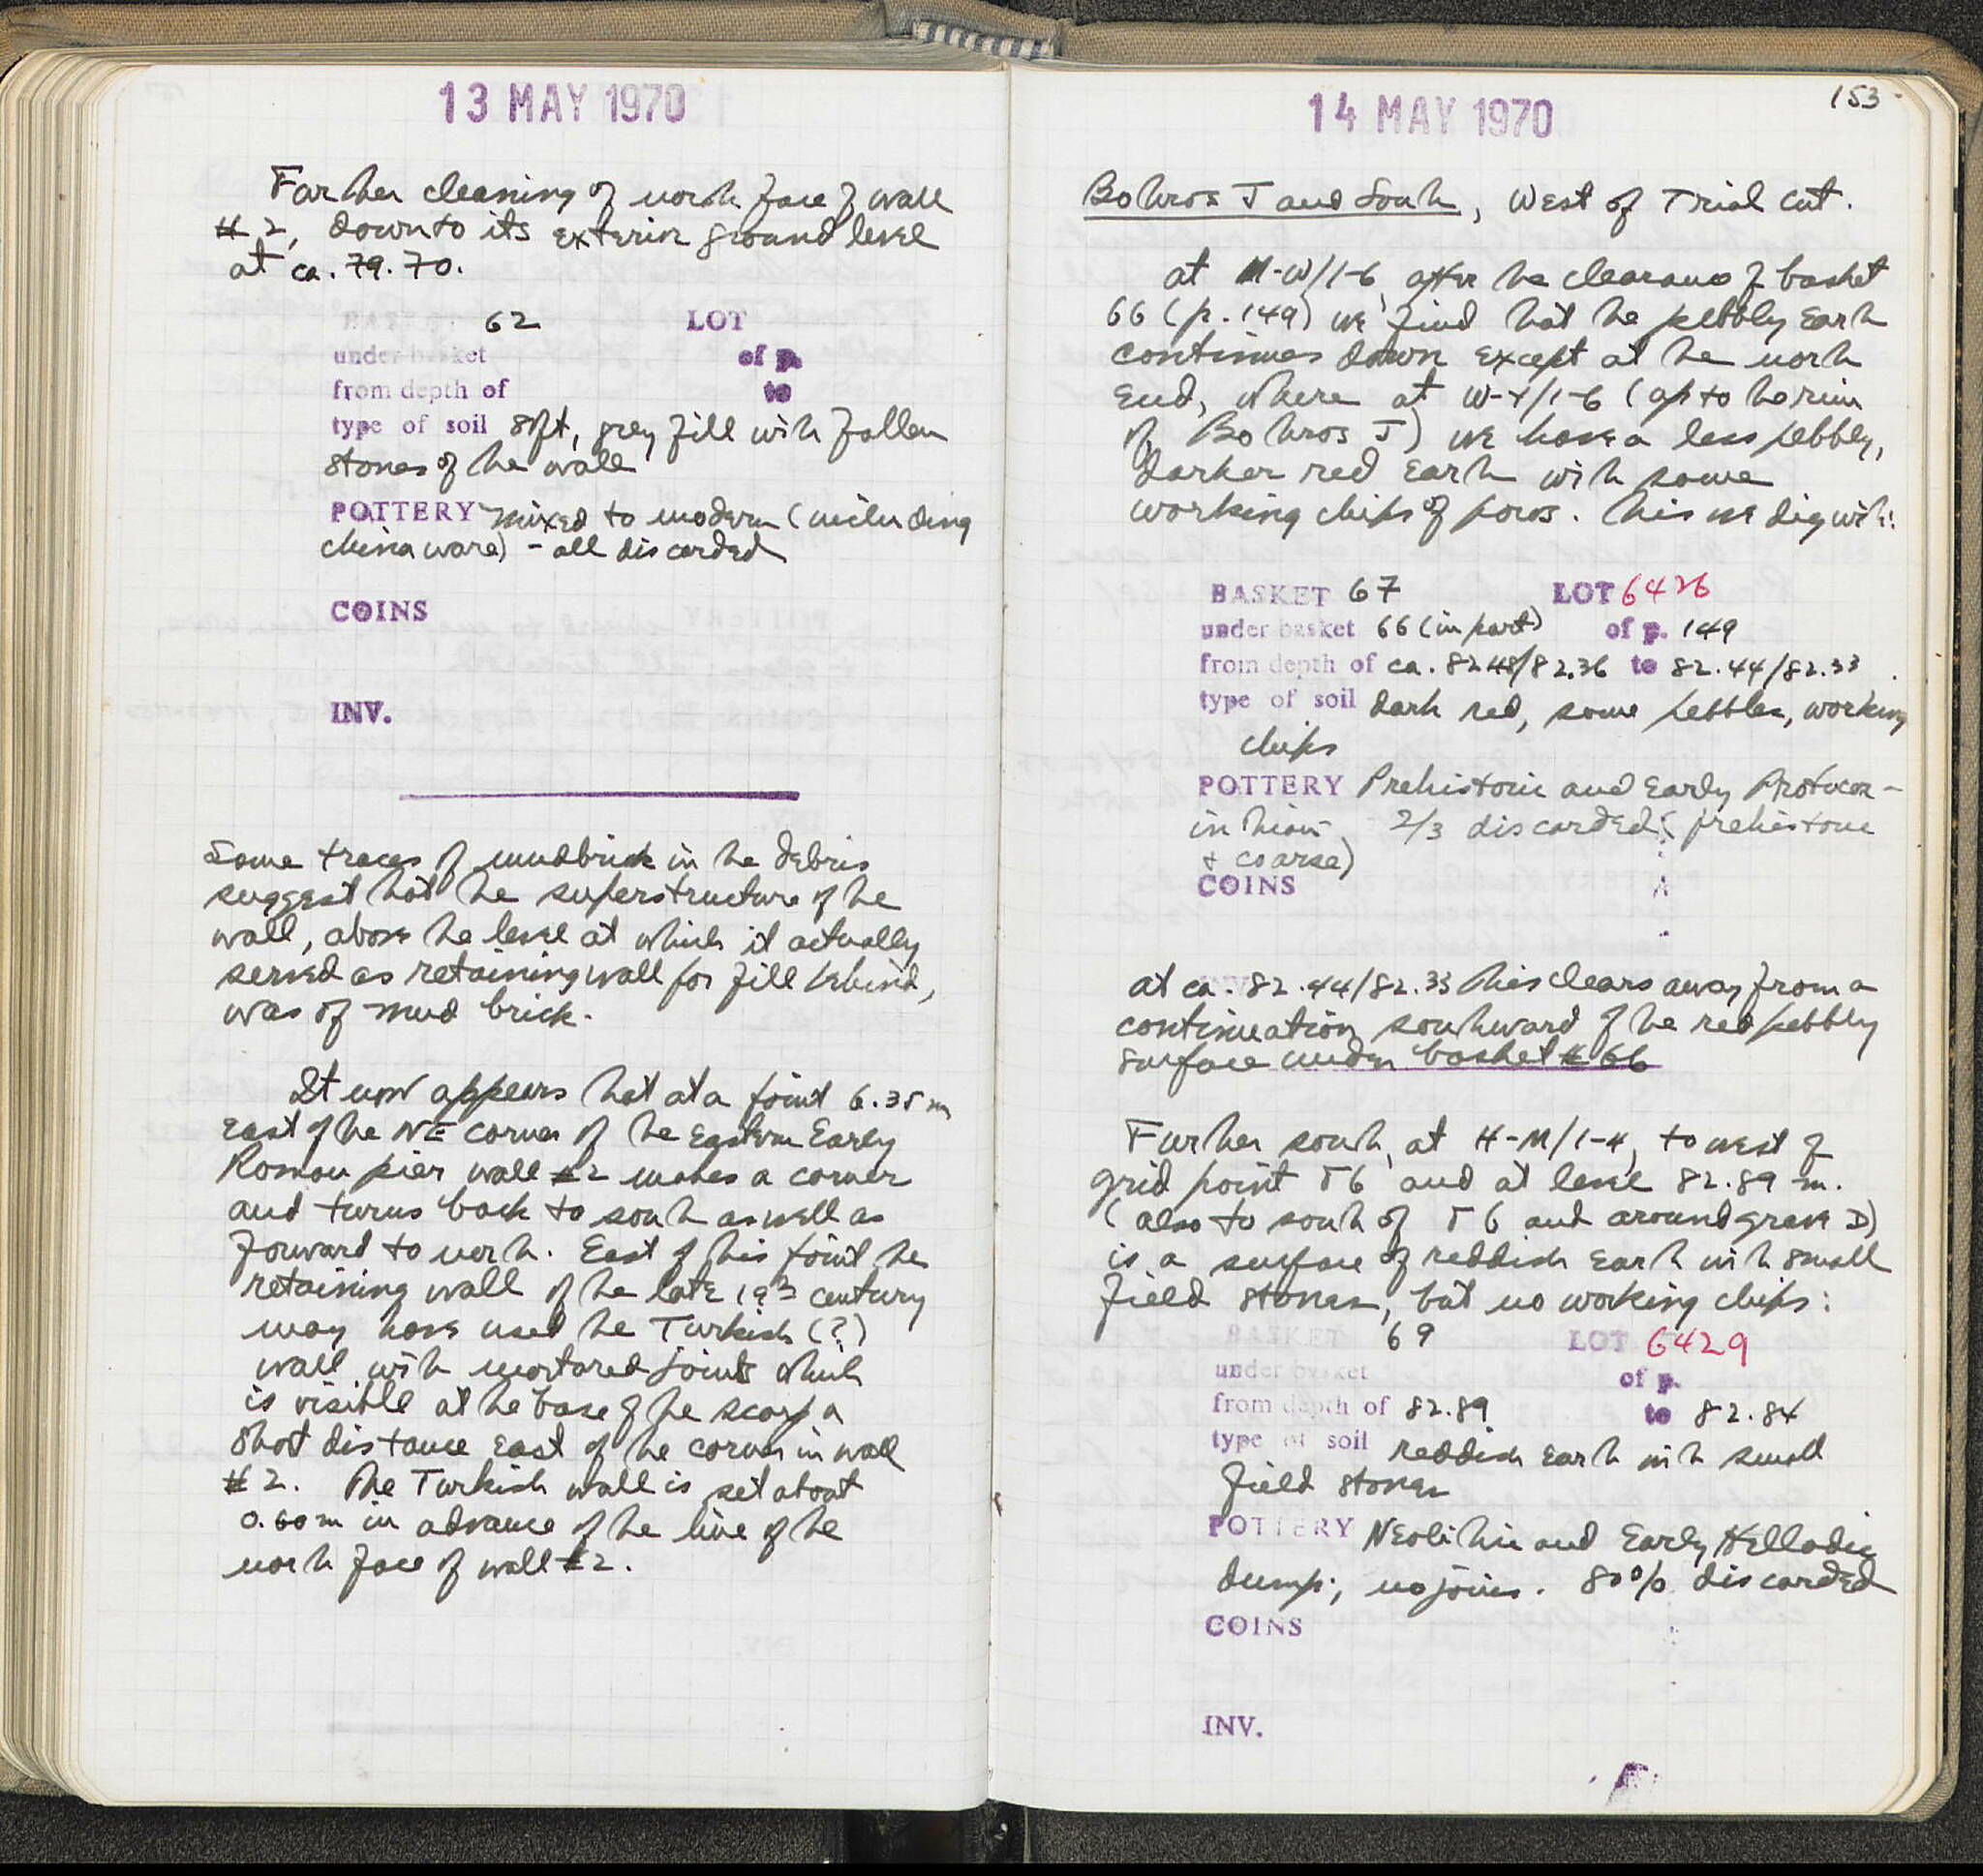 13 MAY 1970
Further cleaning of north face of wall
#2, down to its exterior ground level
at ca. 79.70.
BASKET 62 LOT
under basket of p.
from depth of to
type of soil soft, grey fill with fallen
stones of the wall
POTTERY mixed to modern (including
china ware) - all discarded
COINS
INV.
Some traces of mudbrick in the debris
suggest that the superstructure of the
wall, above the level at which it actually
served as retaining wall for fill behind,
was of mud brick.
It now appears that at a point 6.35 m
East of the NE corner of the Eastern Early
Roman pier wall #2 makes a corner
and turns back to south as well as
forward to north. East of this point the
retaining wall of the late 19th century
may have used the Turkish (?)
wall with mortared joints which
is visible at the base of the scarp a
short distance east of the corner in wall
#2. The Turkish wall is set about
0.60 m in advance of the line of the
north face of wall #2.
153
14 MAY 1970
Bothros J and South, West of Trial Cut.
at M-W/1-6, after the clearance of basket
66 (p. 149) we find that the pebbly earth
continues down except at the north
end, where at W-Y/1-6 (up to the rim
of Bothros J) we have a less pebbly,
darker red earth with some
working chips of poros. This we dig with:
BASKET 67 LOT 6426
under basket 66 (in part) of p. 149
from depth of ca. 82.48/82.36 to 82.44/82.33
type of soil dark red, some pebbles, working
chips
POTTERY Prehistoric and Early Protocor-
inthian. 2/3 discarded (prehistoric
+ coarse)
COINS
at ca. 82.44/82.33 this clears away from a
continuation southward of the red pebbly
surface under basket #66
Further south, at H-M/1-4, to west of
grid point Γ6 and at level 82.89 m.
(also to south of Γ6 and around grave D)
is a surface of reddish earth with small
field stones, but no working chips:
BASKET 69 LOT 6429
under basket of p.
from depth of 82.89 to 82.84
type of soil reddish earth with small
field stones
POTTERY Neolithic and Early Helladic
dump; no joins. 80% discarded
COINS
INV.